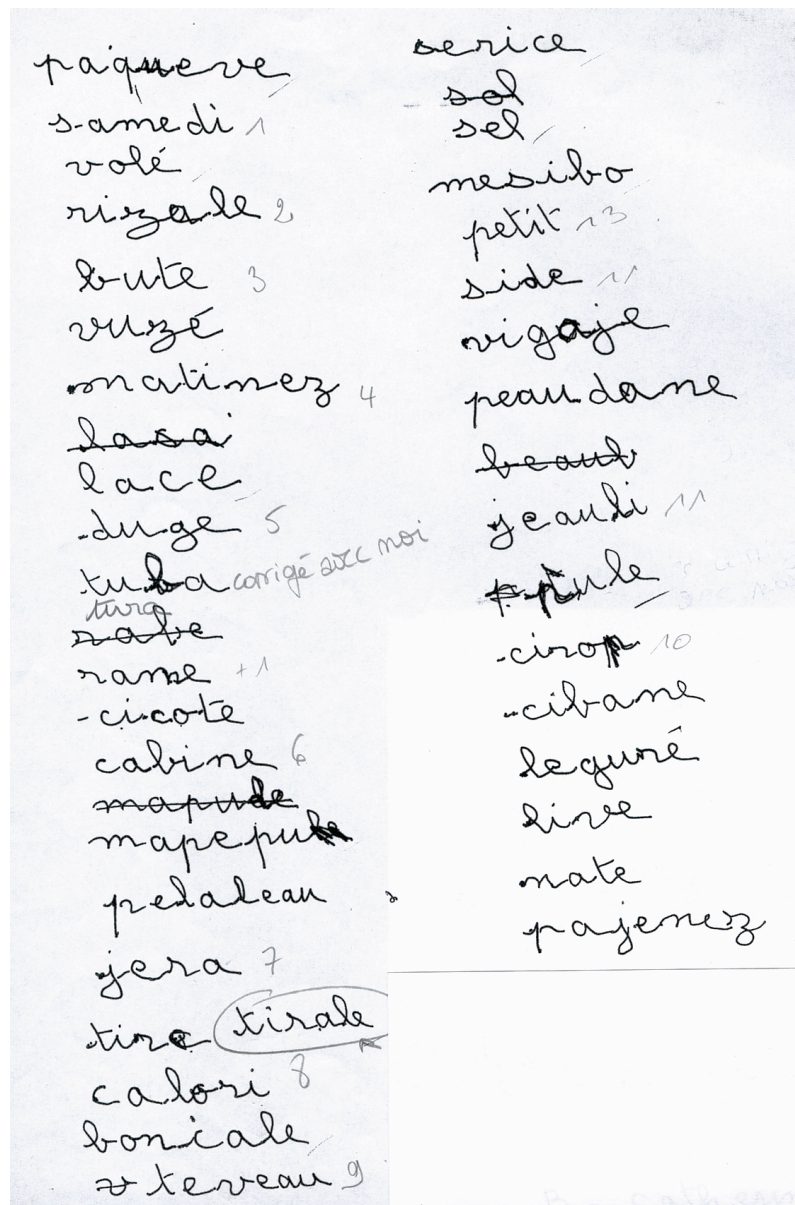 paiqueve
samedi 1
volé
rizale 2
bute 3
vuzé
matinez 4
lasai
lace
duge 5
tuba corrigé avec moi
tura
rabe
rame +1
cicote
cabine 6
mapude
mapepu
pelaleau
jera 7
tire tirale
calori 8
boniale
v teveau 9
serice
sol
sel
mesibo
petit 13
side 11
vigaje
peaudane
beaub
jeauli 11
pule
cirop 10
cibane
leguré
live
nate
pajenez